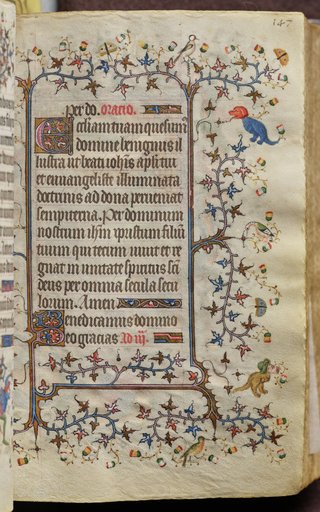 147
per do. Oracio.
Ecclesiam tuam quesum'
domine benignus il
lustra ut beati ioh'is ap'li tui
et euangeliste illuminata
doctrinis ad dona perueniat
sempiterna. Per dominum
nostrum ih'm xpistum filiū
tuum qui tecum uiuit et re
gnat in unitate spiritus sc̄i
deus per omnia secula secu
lorum. Amen.
Benedicamus domino
Deo gracias Ad iij.